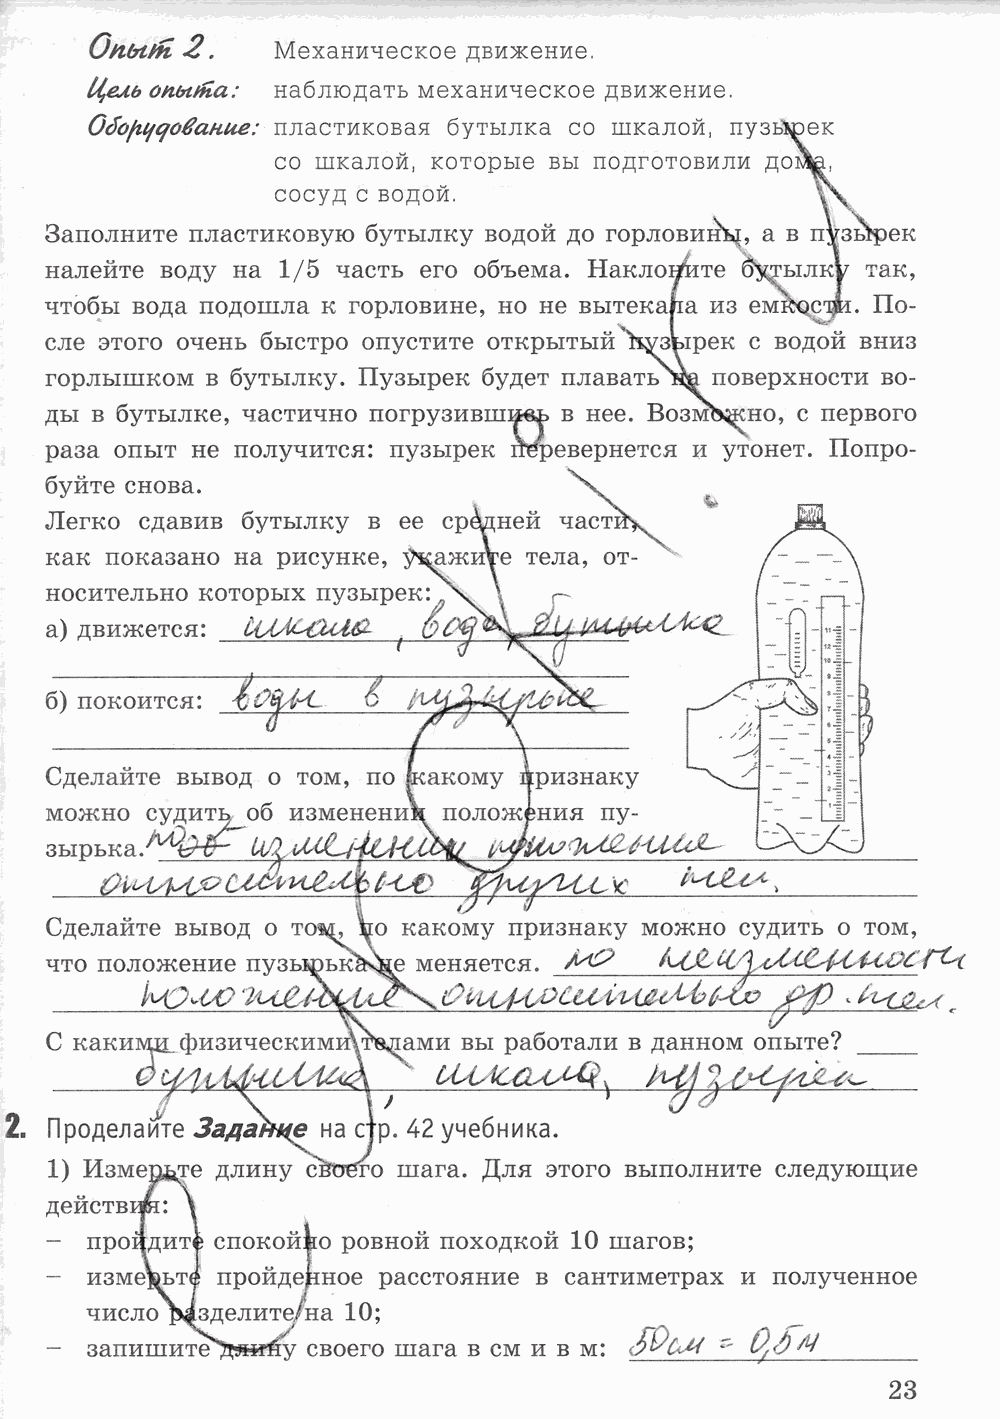 Опыт 2. Механическое движение.
Цель опыта: наблюдать механическое движение.
Оборудование: пластиковая бутылка со шкалой, пузырек
со шкалой, которые вы подготовили дома,
сосуд с водой.
Заполните пластиковую бутылку водой до горловины, а в пузырек
налейте воду на 1/5 часть его объема. Наклоните бутылку так,
чтобы вода подошла к горловине, но не вытекала из емкости. По-
сле этого очень быстро опустите открытый пузырек с водой вниз
горлышком в бутылку. Пузырек будет плавать на поверхности во-
ды в бутылке, частично погрузившись в нее. Возможно, с первого
раза опыт не получится: пузырек перевернется и утонет. Попро-
буйте снова.
Легко сдавив бутылку в ее средней части,
как показано на рисунке, укажите тела, от-
носительно которых пузырек:
а) движется: шкала, вода, бутылка
б) покоится: воды в пузырьке
Сделайте вывод о том, по какому признаку
можно судить об изменении положения пу-
зырька. по изменении положение
относительно других тел.
Сделайте вывод о том, по какому признаку можно судить о том,
что положение пузырька не меняется. по неизменности
положение относительно др. тел.
С какими физическими телами вы работали в данном опыте?
бутылка, шкала, пузырёк
2. Проделайте Задание на стр. 42 учебника.
1) Измерьте длину своего шага. Для этого выполните следующие
действия:
– пройдите спокойно ровной походкой 10 шагов;
– измерьте пройденное расстояние в сантиметрах и полученное
число разделите на 10;
– запишите длину своего шага в см и в м: 50см = 0,5м
23